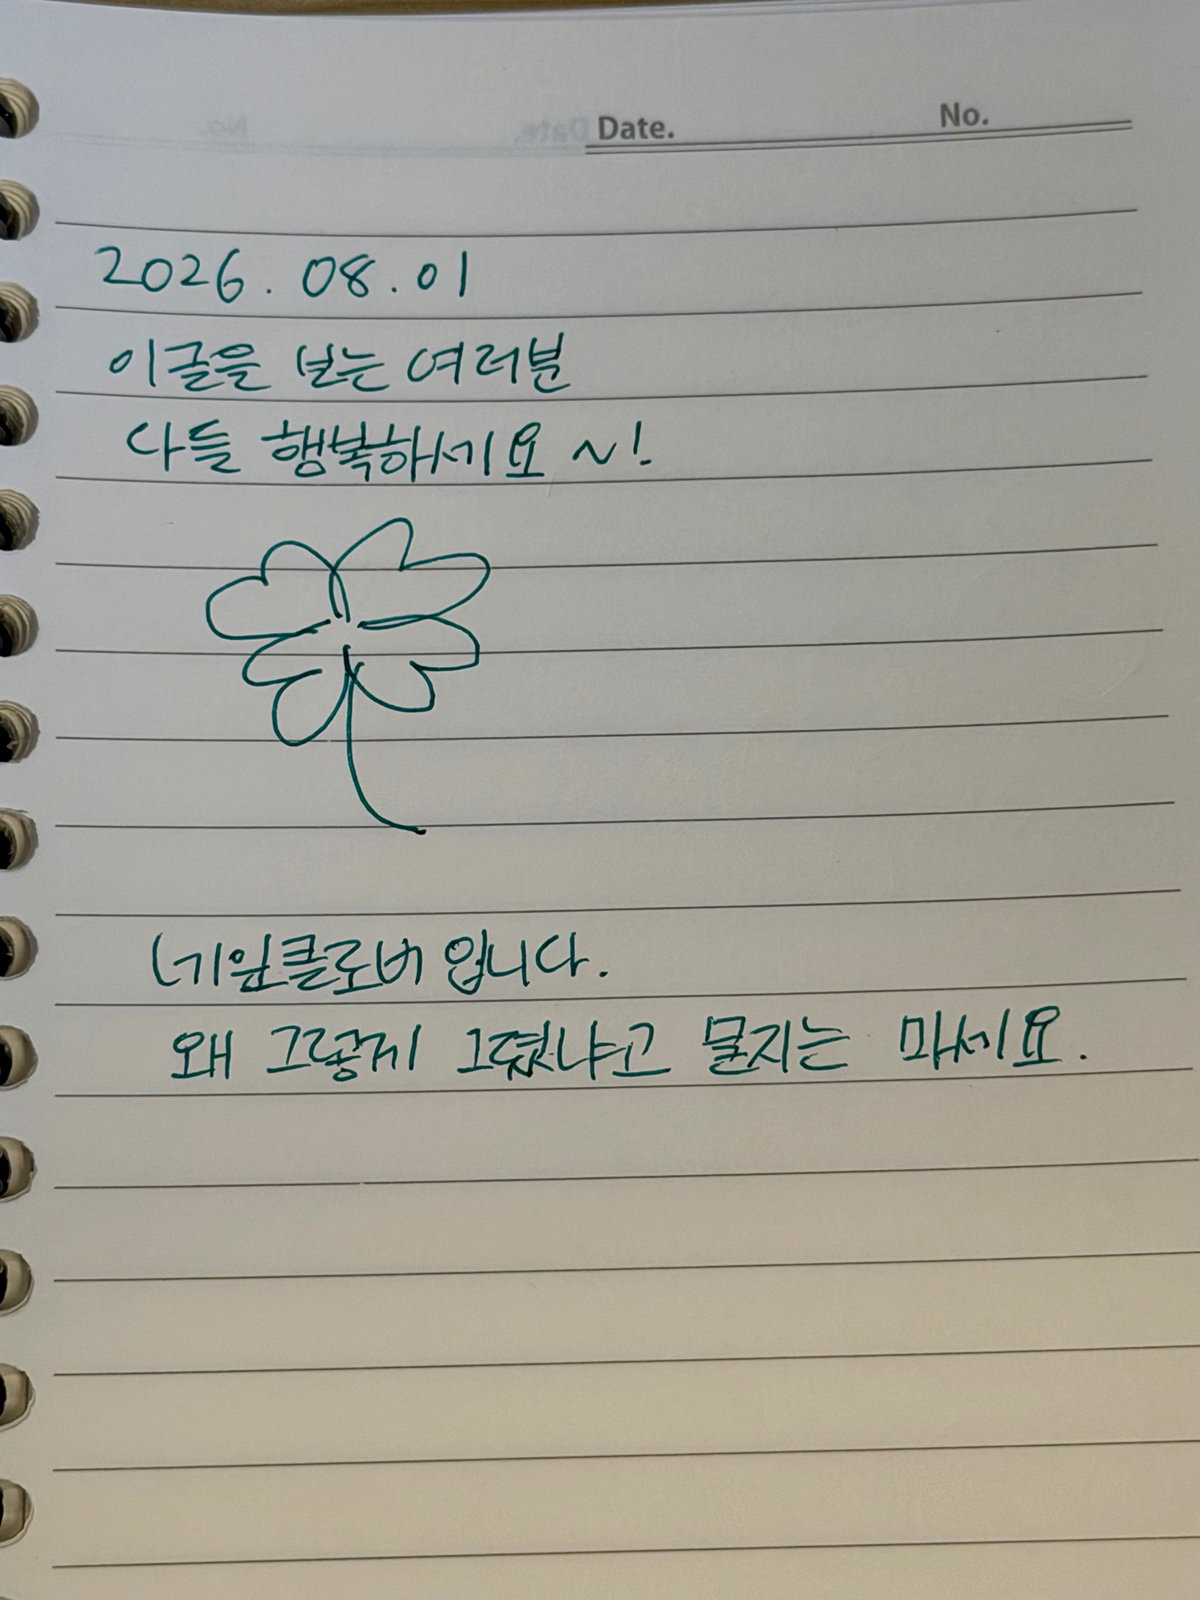 Date. No.
2026. 08. 01
이글을 보는 여러분
다들 행복하세요 ~!
네잎클로버 입니다.
왜 그렇게 그렸냐고 묻지는 마세요.